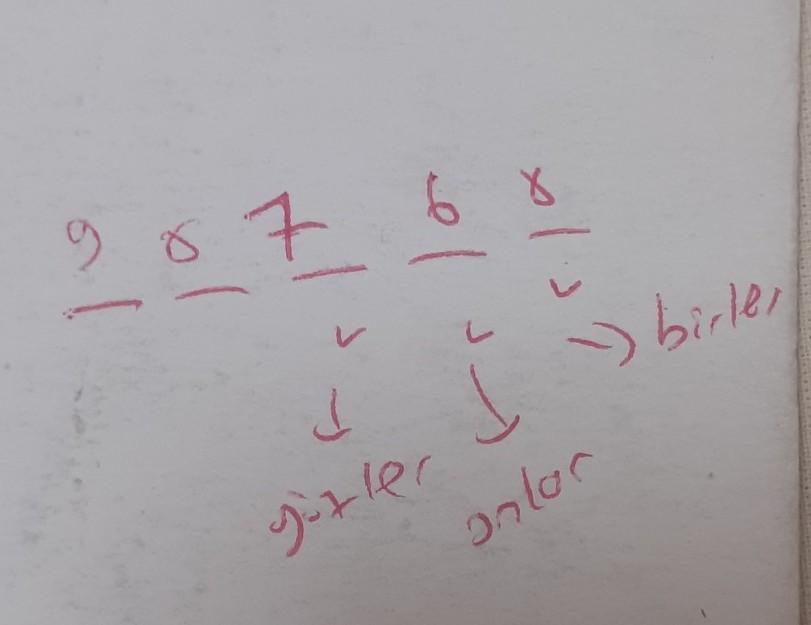 9 8 7 6 8
→ birler
yüzler onlar